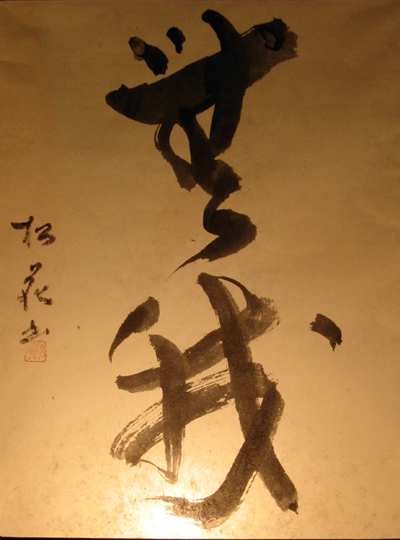 無我
松花書